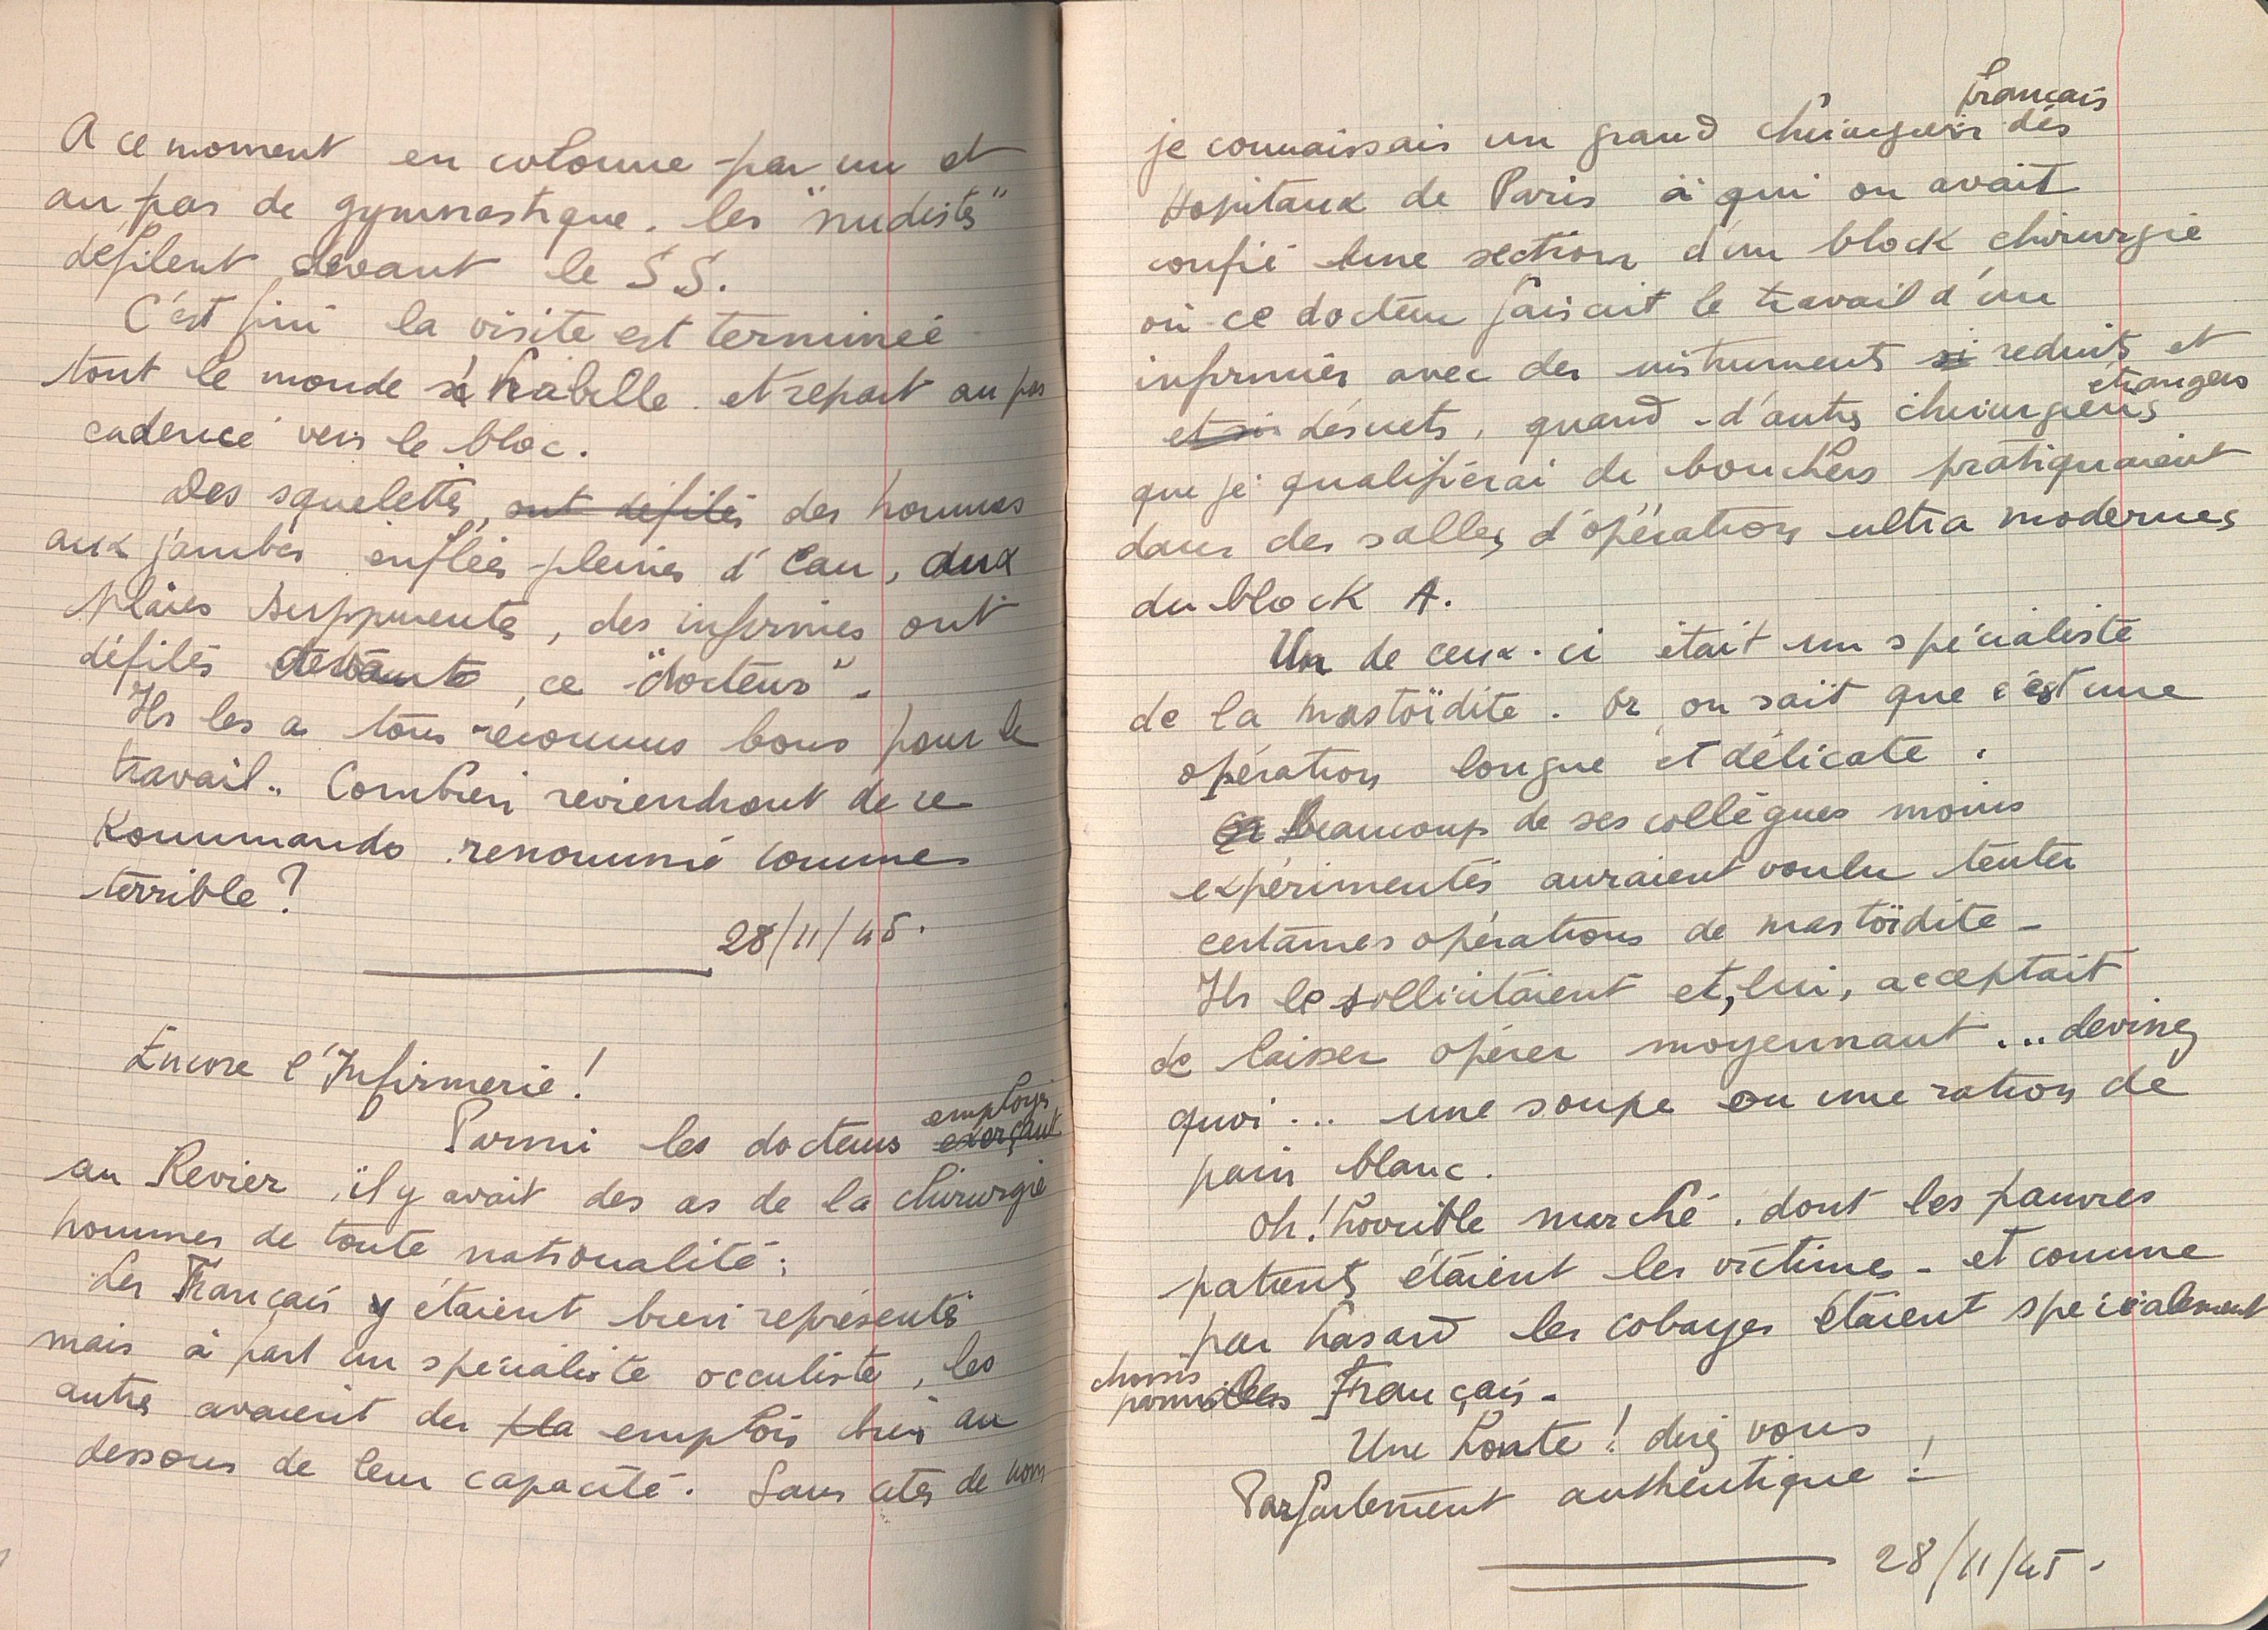 A ce moment en colonne par un et
au pas de gymnastique. les "nudistes"
défilent devant le SS.
C'est fini la visite est terminée
tout le monde s'habille et repart au pas
cadencé vers le bloc.
Des squelettes, ont défilés des hommes
aux jambes enflées pleines d'eau, aux
plaies suppurentes, des infirmes ont
défilés devant ce "docteur".
Ils les a tous reconnus bons pour le
travail.. Combien reviendront de ce
Kommando renommé comme
terrible?
28/11/45.
Encore l'Infirmerie!
employés
Parmi les docteurs exerçant
au Revier, il y avait des as de la chirurgie
hommes de toute nationalité;
Les Français y étaient bien représentés
mais à part un spécialiste occuliste, les
autres avaient des pla emplois bien au
dessous de leur capacité. Sans citer de nom
français
je connaissais un grand chirurgien des
Hopitaux de Paris à qui on avait
confié une section d'un block chirurgie
où ce docteur faisait le travail d'un
infirmier avec des instruments si reduits et
étrangers
et si désuets, quand d'autres chirurgiens
que je qualifierai de bouchers pratiquaient
dans des salles d'opération ultra modernes
du block A.
Un de ceux-ci était un spécialiste
de la mastoïdite. Or on sait que c'est une
opération longue et délicate.
Or Beaucoup de ses collègues moins
expérimentés auraient voulu tenter
certaines opérations de mastoïdite -
Ils le sollicitaient et, lui, acceptait
de laisser opérer moyennant ... devinez
quoi ... une soupe ou une ration de
pain blanc.
Oh! horrible marché. dont les pauvres
patients étaient les victimes - et comme
par hasard les cobayes étaient specialement
choisis
parmi les Français -
Une honte! direz vous
Parfaitement authentique!
28/11/45.